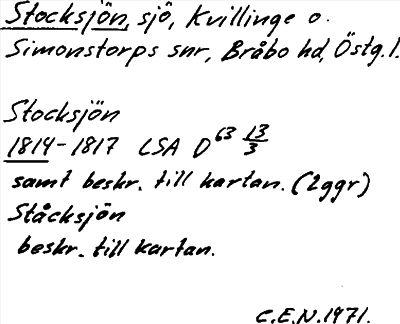 Stocksjön, sjö, Kvillinge o.
Simonstorps snr, Bråbo hd, Östg.l.
Stocksjön
1814-1817 LSA D 63 13/3
samt beskr. till kartan. (2ggr)
Ståcksjön
beskr. till kartan.
C.E.N. 1971.